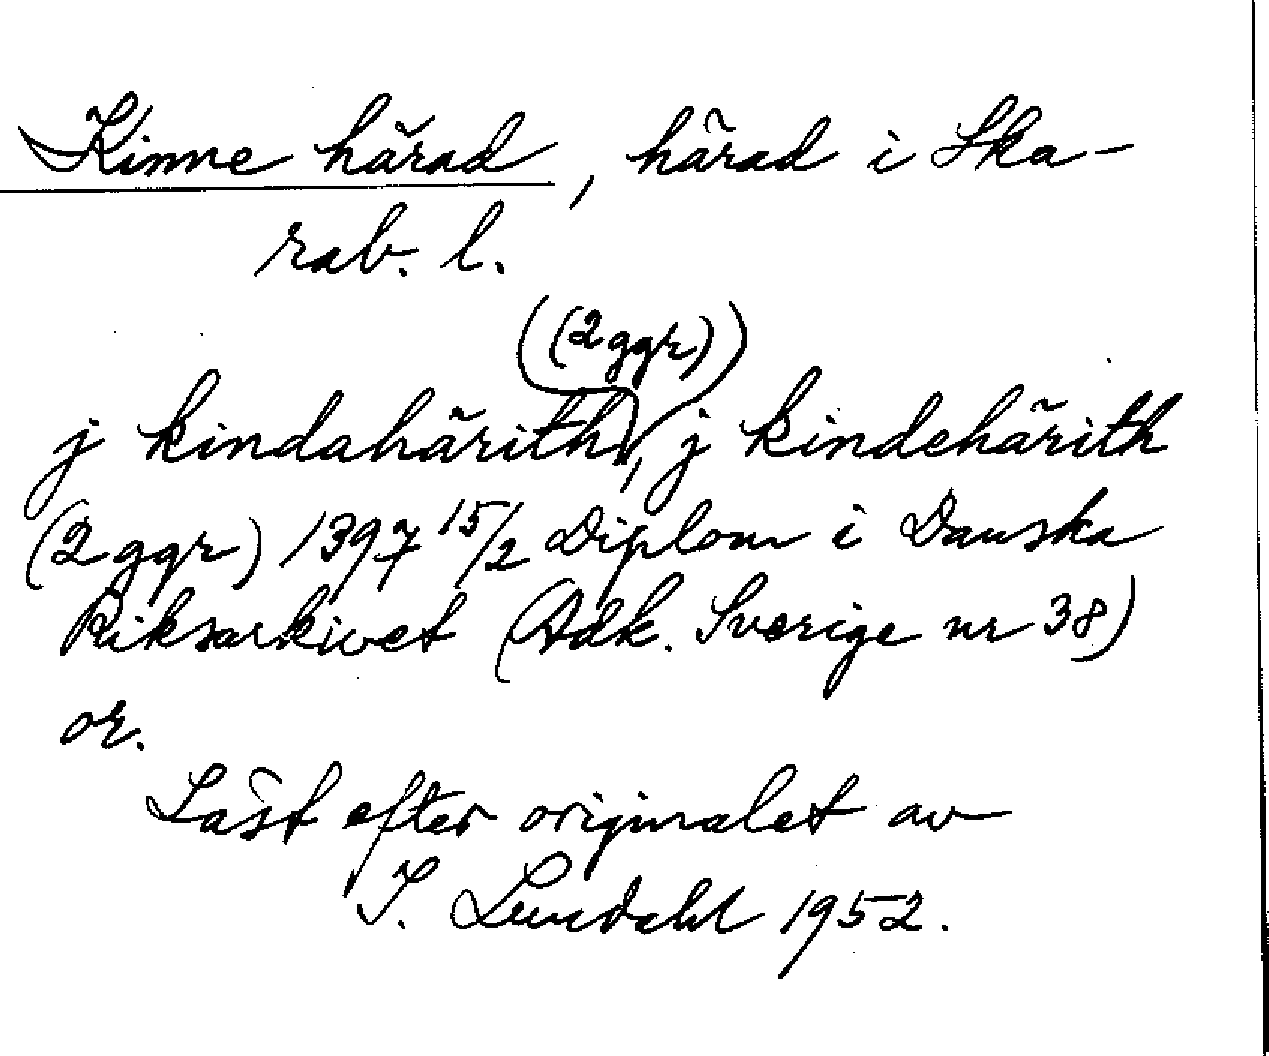 Kinne härad, härad i Ska-
rab. l.
((2 ggr))
j kindahärith, j kindehärith
(2 ggr) 1397 15/2 Diplom i Danska
Riksarkivet (Adk. Sverige nr 38)
or.
Läst efter originalet av
I. Lundahl 1952.